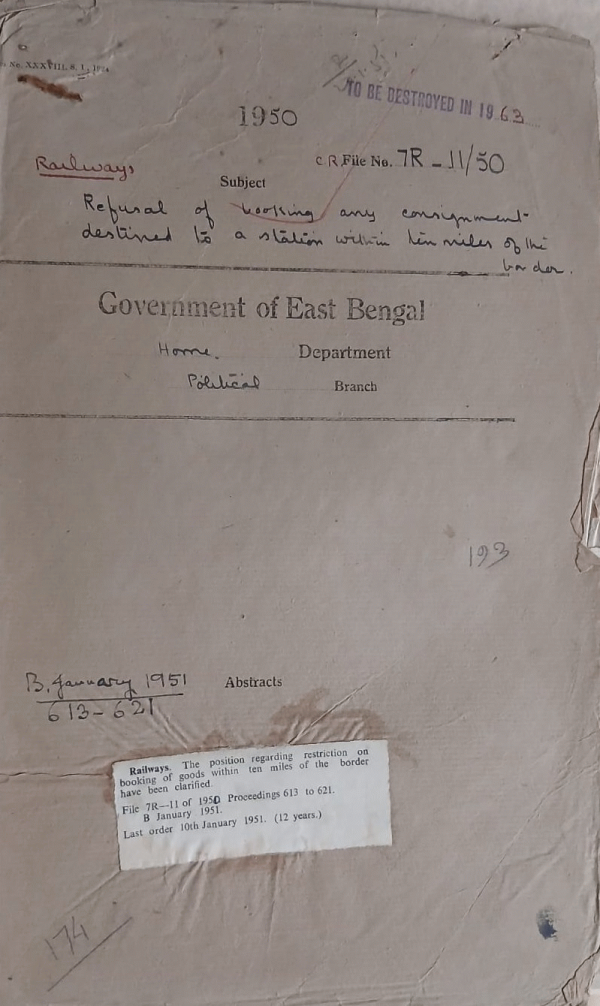 No. XXXVIII. 8. 1,
TO BE DESTROYED IN 1963
1950
Railways
C R File No. 7R - 11/50
Subject
Refusal of booking any consignment
destined to a station within ten miles of the
border.
Government of East Bengal
Home. Department
Political Branch
193
B. January 1951
613 - 621
Abstracts
Railways. The position regarding restriction on
booking of goods within ten miles of the border
have been clarified.
File 7R—11 of 1950 Proceedings 613 to 621.
B January 1951.
Last order 10th January 1951. (12 years.)
174